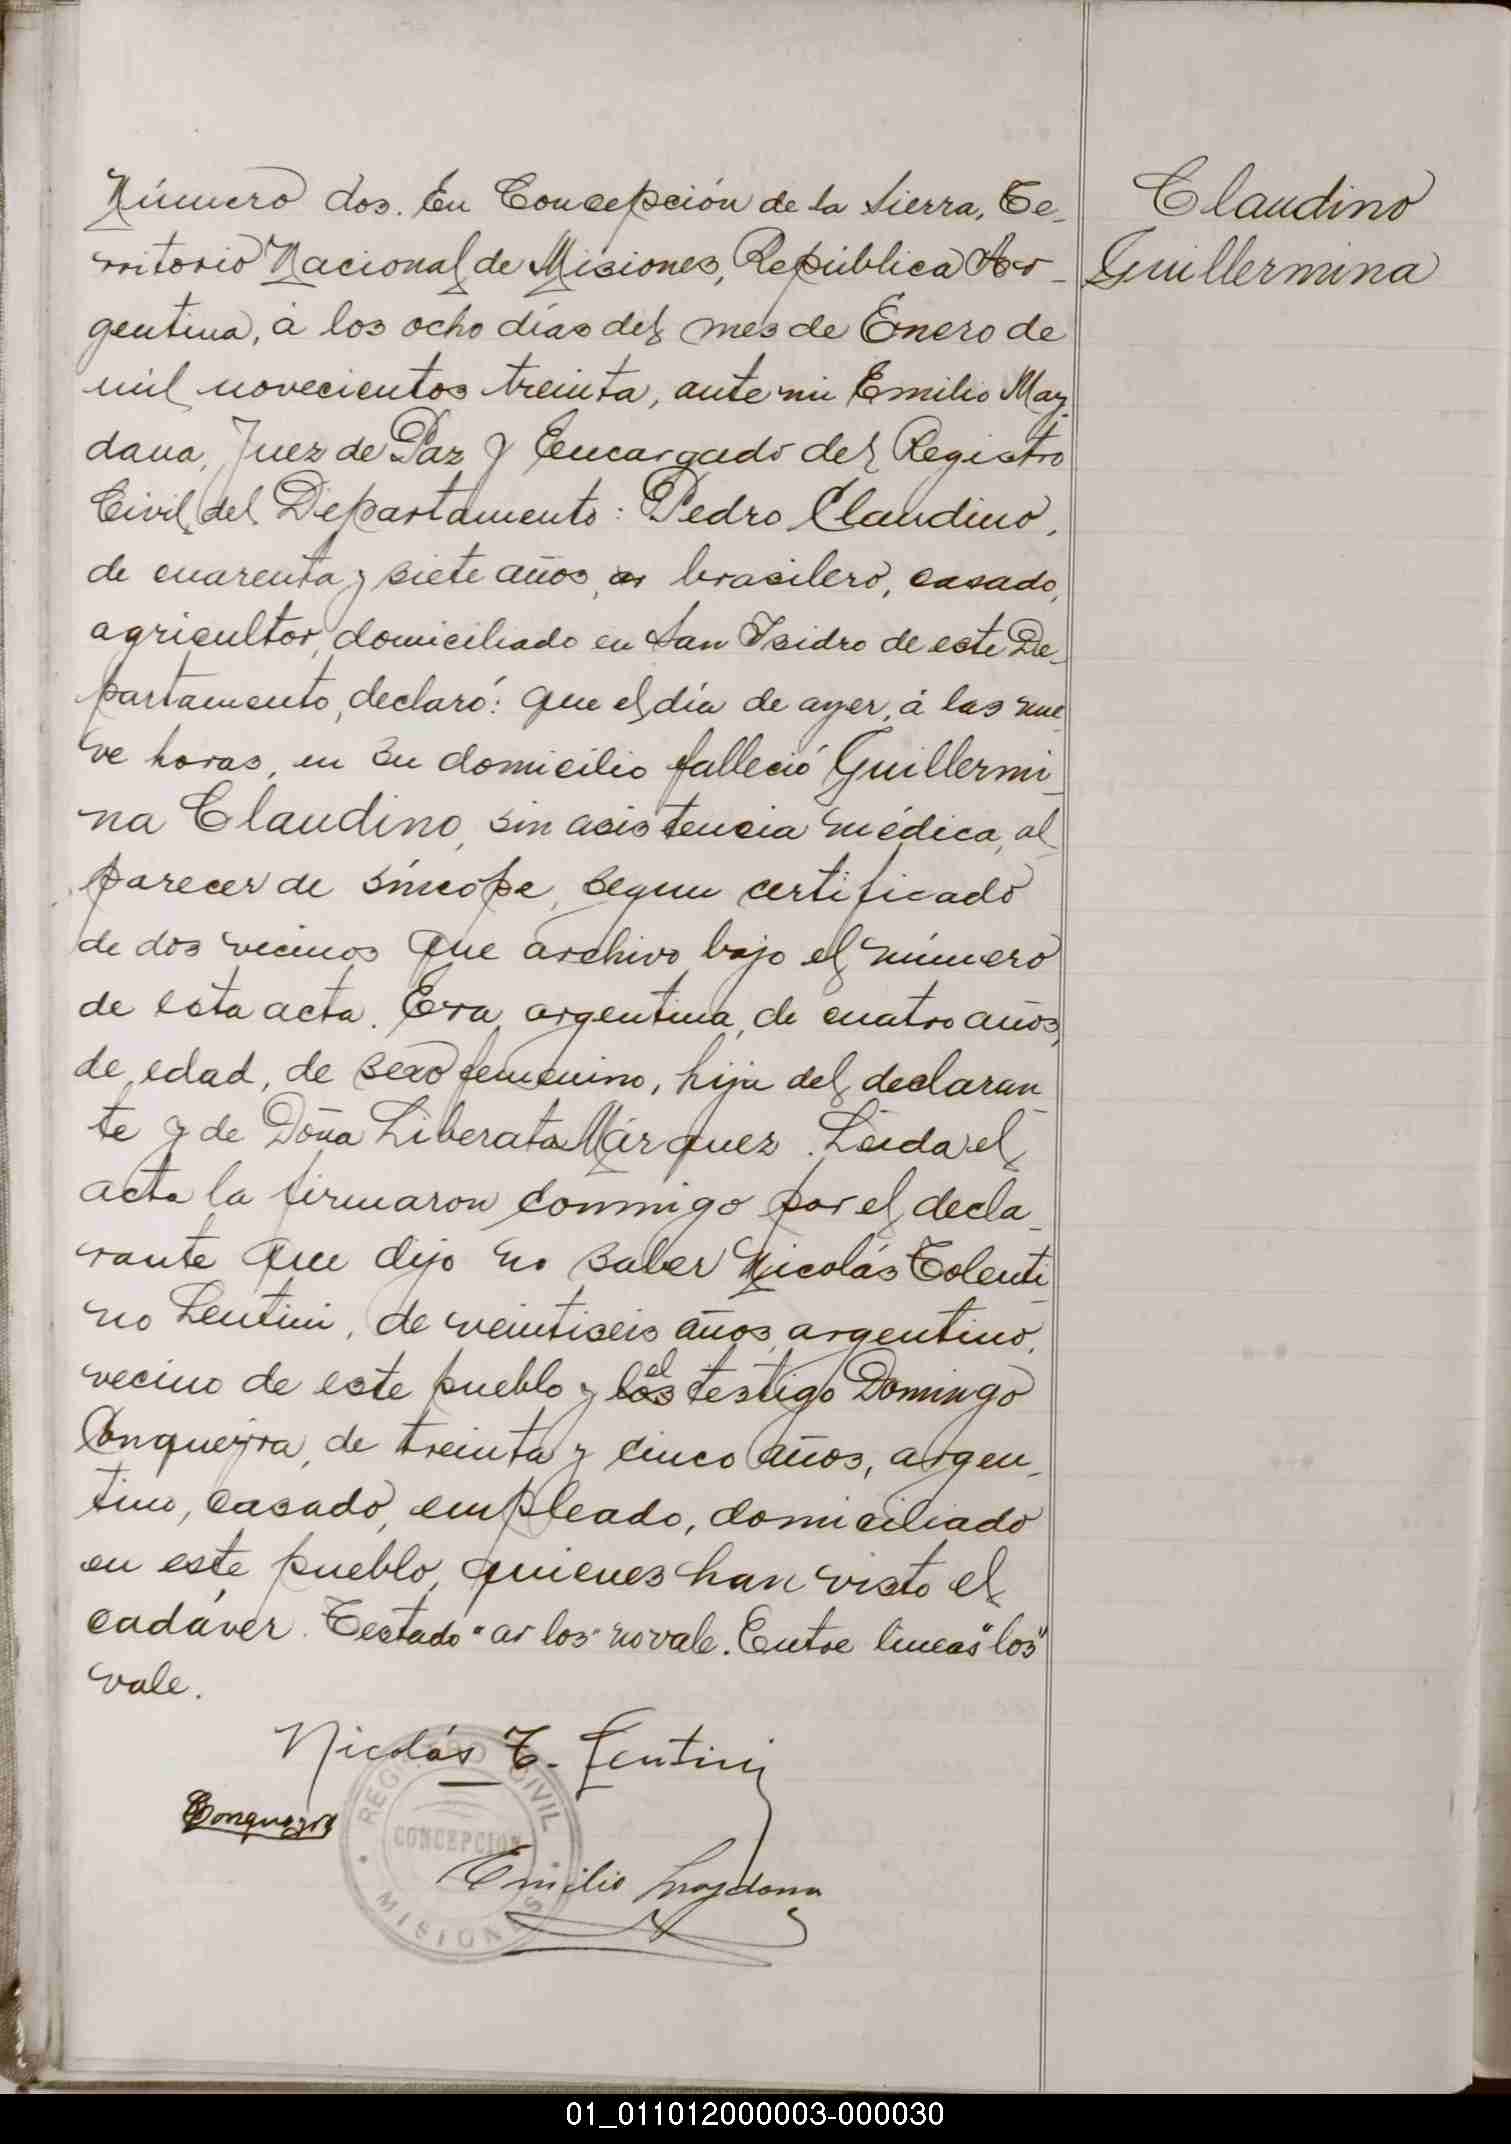 Número dos. En Concepción de la Sierra, Te-
rritorio Nacional de Misiones, República Ar-
gentina, á los ocho días del mes de Enero de
mil novecientos treinta, ante mi Emilio May-
dana, Juez de Paz y Encargado del Registro
Civil del Departamento: Pedro Claudino,
de cuarenta y siete años, ar brasilero, casado,
agricultor, domiciliado en San Isidro de este De-
partamento, declaró: que el día de ayer, á las nue
ve horas, en su domicilio falleció Guillermi-
na Claudino, sin asistencia médica, al
parecer de síncope, segun certificado
de dos vecinos que archivo bajo el número
de esta acta. Era argentina, de cuatro años,
de edad, de sexo femenino, hija del declaran-
te y de Doña Liberata Márquez. Leida el
acta la firmaron conmigo por el decla-
rante que dijo no saber Nicolás Tolenti-
no Lentini, de veintiseis años, argentino,
vecino de este pueblo y los el testigo Domingo
Conqueyra, de treinta y cinco años, argen-
tino, casado, empleado, domiciliado
en este pueblo, quienes han visto el
cadáver. Testado "ar los" no vale. Entre lineas "los"
vale.
Nicolás T. Lentini
Emilio Maydana
REGISTRO CIVIL
CONCEPCION
MISIONES
Claudino
Guillermina
01_011012000003-000030